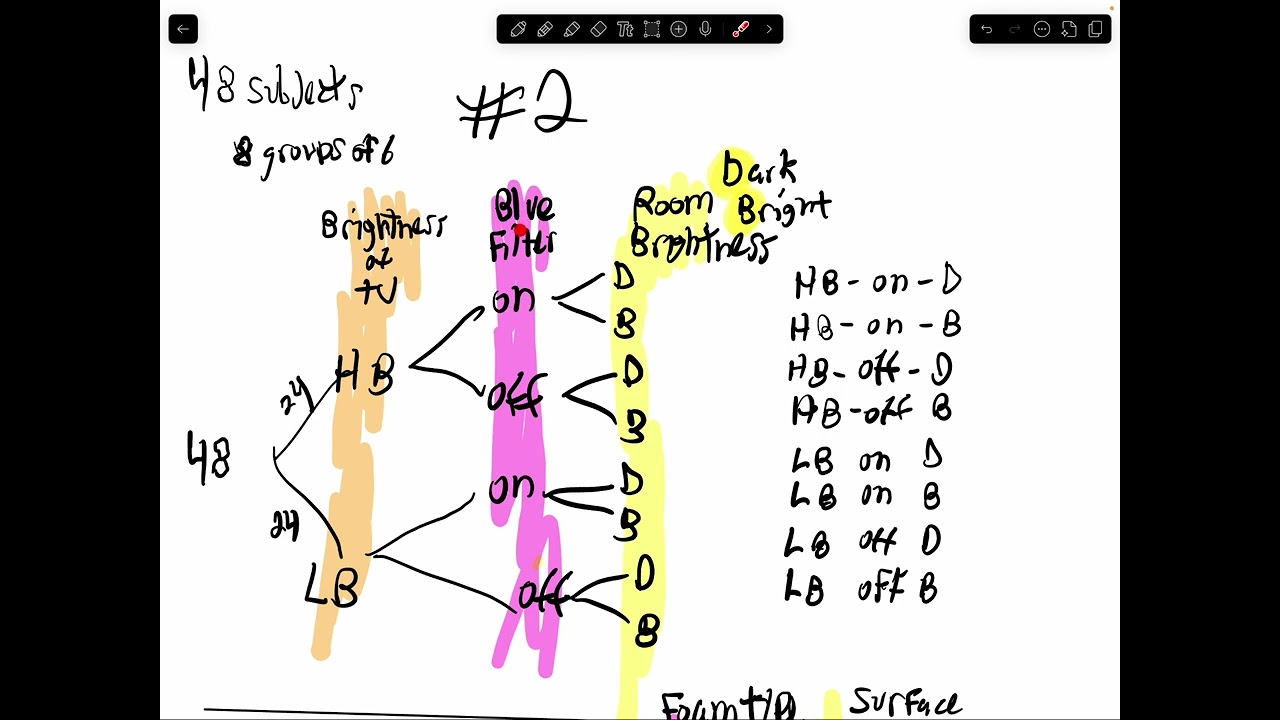 48 subjects
#2
8 groups of 6
Brightness
of
TV
Blue
Filter
Room
Brightness
Dark
Bright
48
24
24
HB
LB
on
off
on
off
D
B
D
B
D
B
D
B
HB - on - D
HB - on - B
HB - off - D
HB - off B
LB on D
LB on B
LB off D
LB off B
Surface